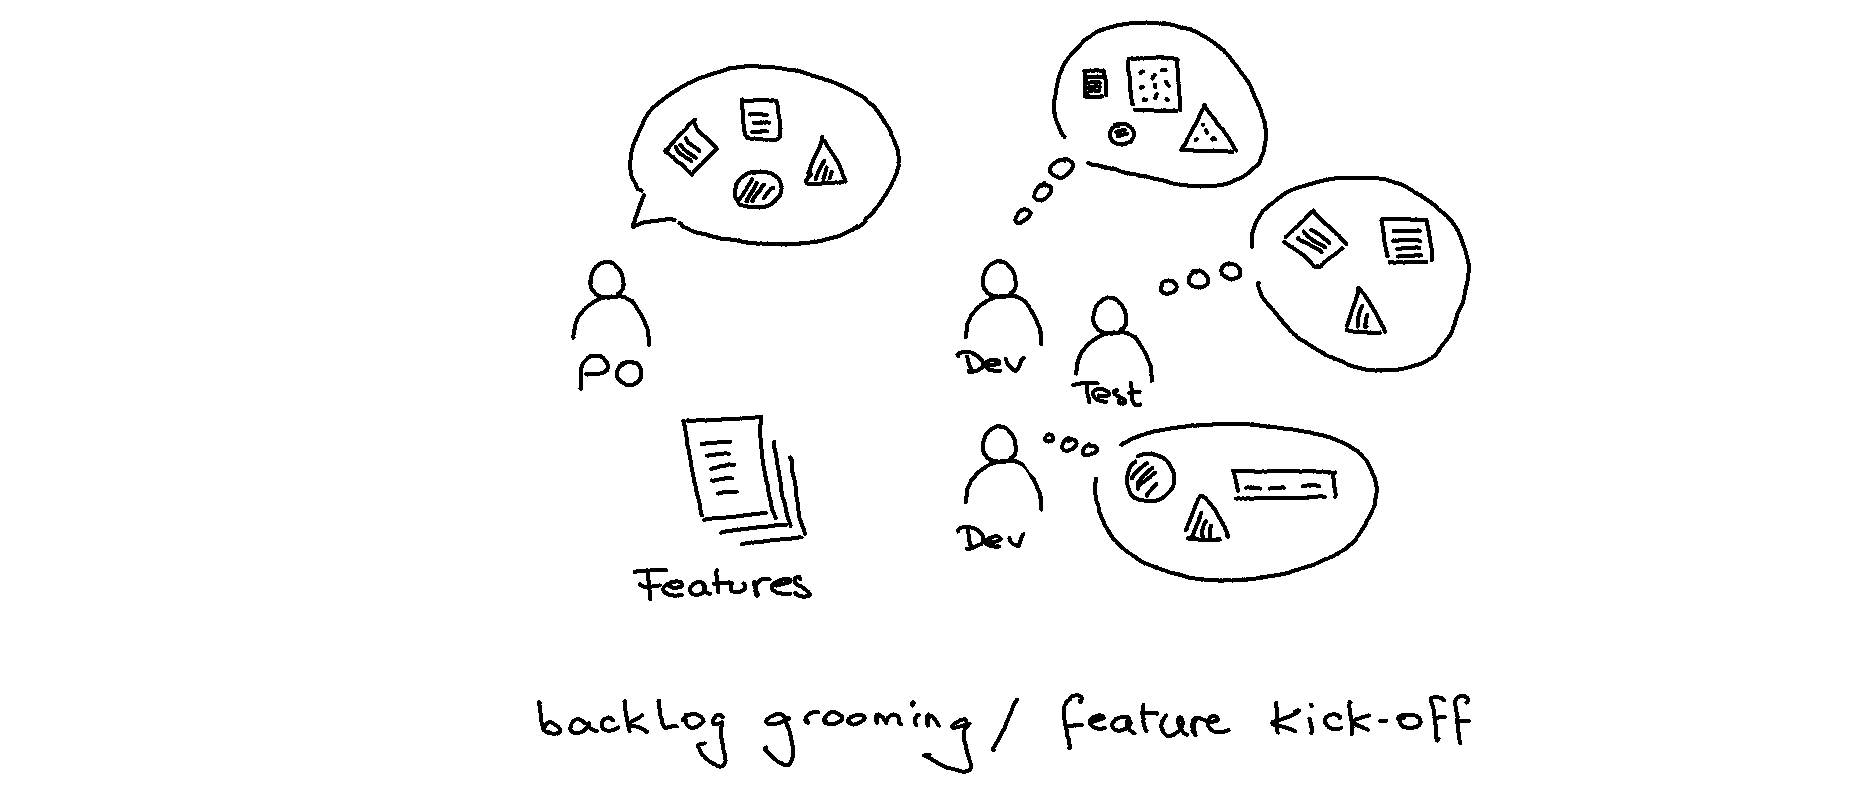 PO
Dev
Test
Dev
Features
backlog grooming / feature kick-off